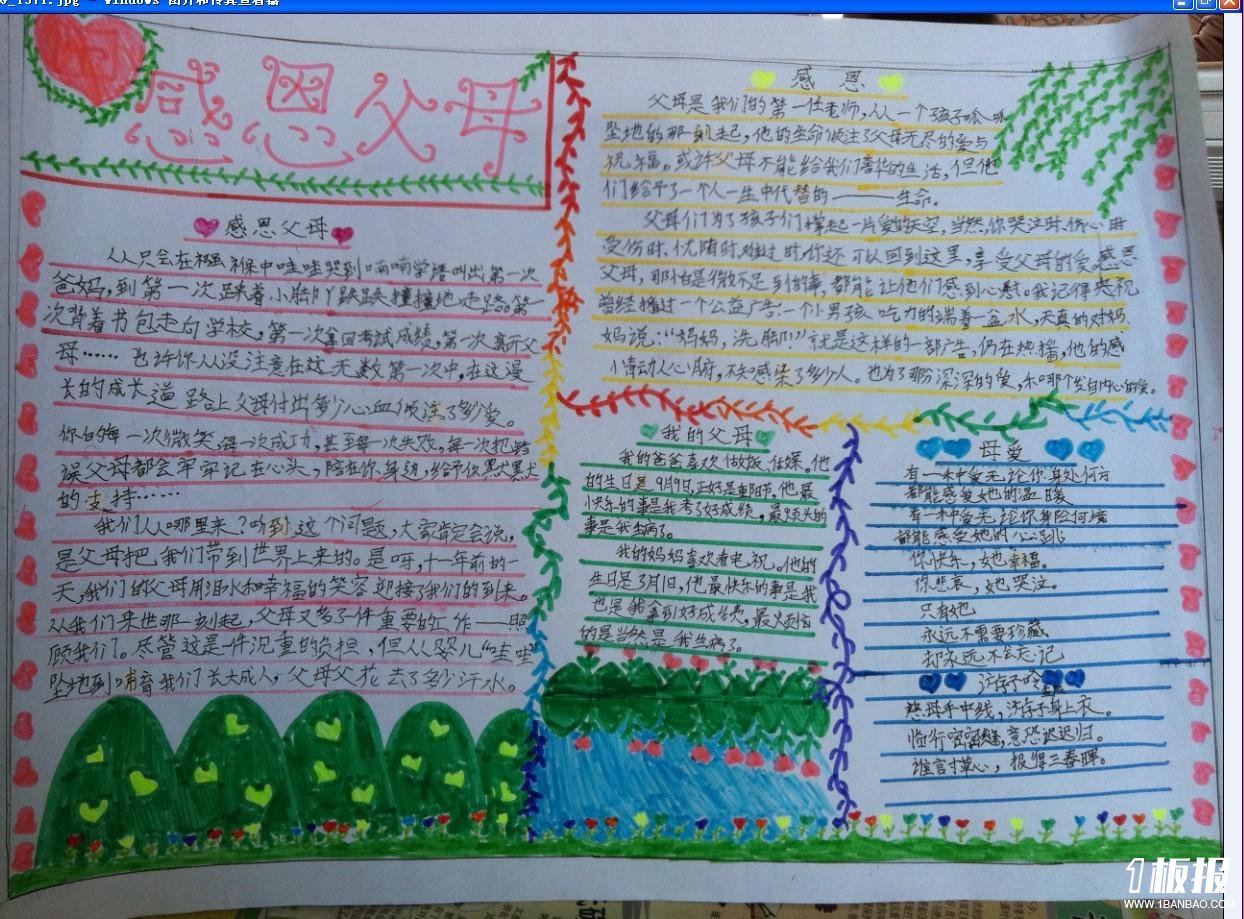 感恩父母
感恩父母
从只会在襁褓中哇哇哭到喃喃学语叫出第一次
爸妈,到第一次踩着小脚丫跌跌撞撞地走路。第一
次背着书包走向学校,第一次拿回考试成绩,第一次离开父
母……也许你从没注意在这无数第一次中,在这漫
长的成长道路上父母付出多少心血倾注了多少爱。
你的每一次微笑,每一次成功,甚至每一次失败,每一次犯错
误父母都会牢牢记在心头,陪在你身边,给予你默默
的支持……
我们从哪里来?听到这个问题,大家肯定会说,
是父母把我们带到世界上来的。是呀,十一年前的一
天,我们的父母用泪水和幸福的笑容迎接了我们的到来。
从我们来世那一刻起,父母又多了件重要的工作——照
顾我们。尽管这是件沉重的负担,但从婴儿“哇哇
坠地到哺育我们长大成人,父母父花去了多少汗水。
感恩
父母是我们的第一任老师,从一个孩子呱呱
坠地的那一刻起,他的生命倾注了父母无尽的爱与
祝福。或许父母不能给我们奢华的生活,但他
们给予了一个人一生中代替的——生命。
父母们为了孩子们撑起一片爱的天空,当然,你哭泣时,伤心时
受伤时,忧随时,难过时,你还可以回到这里,享受父母的爱。感恩
父母,那怕是微不足到的事,都能让他们感到心慰。我记得央视
曾经播过一个公益广告:一个小男孩吃力的端着一盆水,天真的对妈
妈说:“妈妈,洗脚!”就是这样的一部广告,仍在热播,他的感
小情动人心腑,不知感染了多少人。也为了那份深深的爱,和那个发自内心的爱。
我的父母
我的爸爸喜欢做饭、他
的生日是9月9日,正好是重阳节。他最
快乐的事是我考了好成绩,最烦恼的
事是我生病了。
我的妈妈喜欢看电视。他的
生日是3月1日,他最快乐的事是我
也是我拿到好成绩,最烦恼
的是当然是我生病了。
母爱
有一种爱无论你身处何方
都能感受她的温暖
有一种爱无论你身险何境
都能感受她的心跳
你快乐,她幸福。
你悲哀,她哭泣。
只有她
永远不需要珍藏
却永远不会忘记
游子吟
慈母手中线,游子身上衣。
临行密密缝,意恐迟迟归。
谁言寸草心,报得三春晖。
1板报
WWW.1BANBAO.COM